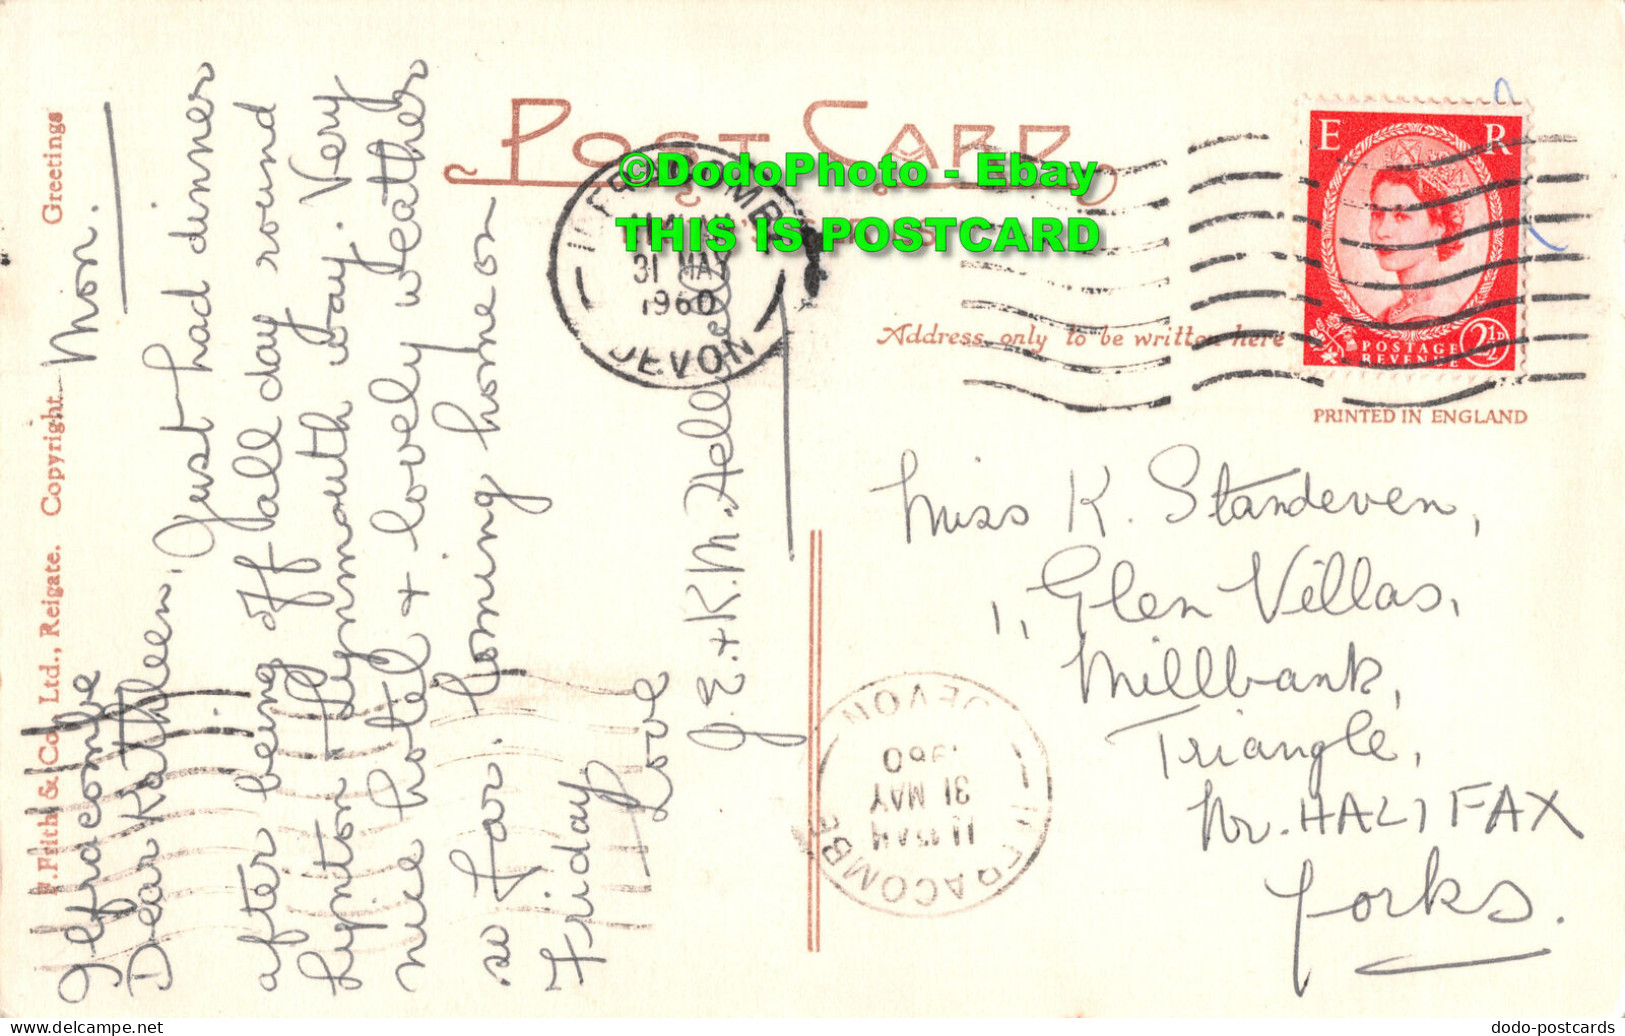 F. Frith & Co. Ltd., Reigate. Copyright. Greetings
Ilfracombe Mon.
Dear Kathleen, Just had dinner
after being off all day round
Lynton + Lynmouth way. Very
nice hotel + lovely weather
so far. Coming home on
Friday
Love
J.E. + K.M.
POST CARD
©DodoPhoto - Ebay
THIS IS POSTCARD
Address only to be written here
E R
POSTAGE
REVENUE
2½D
PRINTED IN ENGLAND
ILFRACOMBE
31 MAY
1960
DEVON
Miss K. Standeven,
1, Glen Villas,
Millbank,
Triangle,
Nr. HALIFAX
Yorks.
ILFRACOMBE
11.15 AM
31 MAY
1960
DEVON
dodo-postcards
delcampe.net